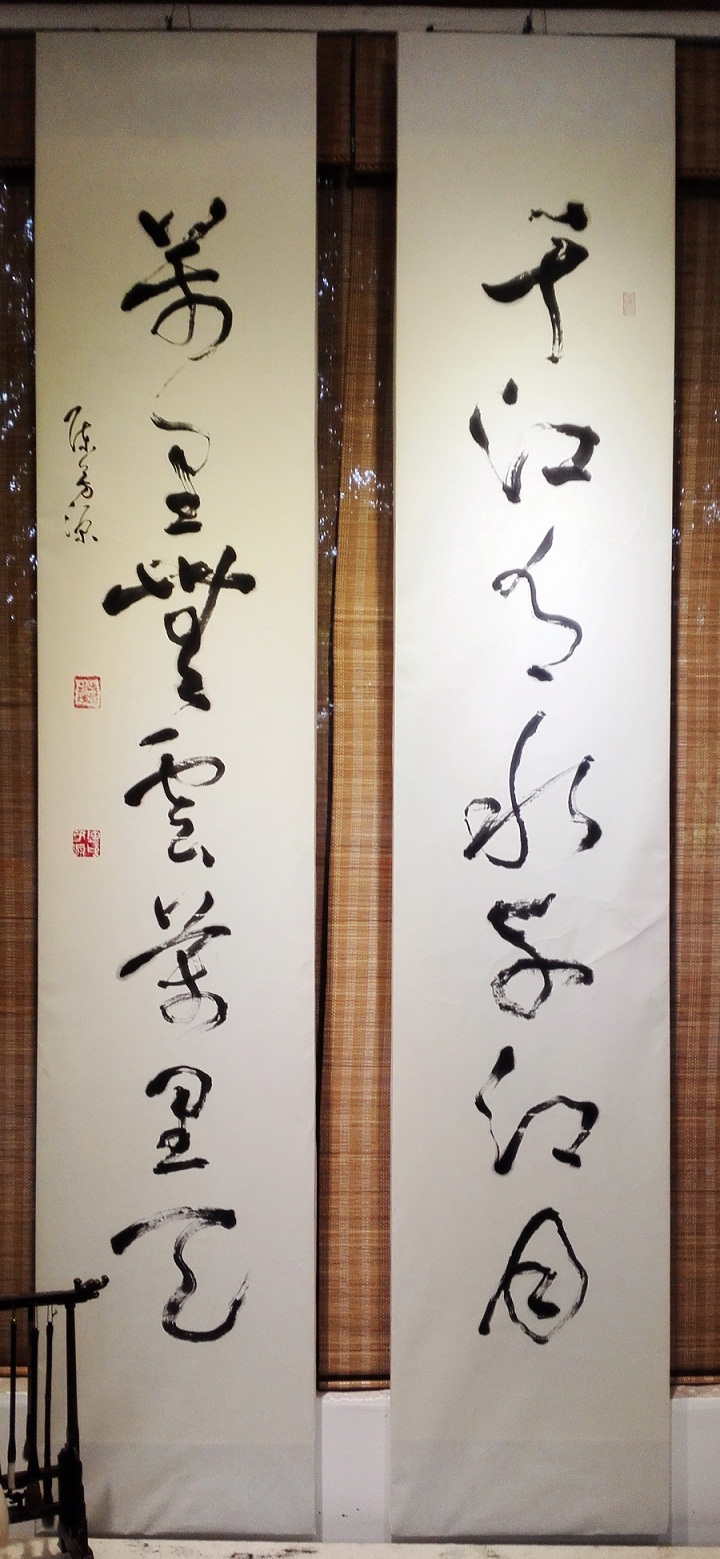 千江有水千江月
萬里無雲萬里天
陳秀源